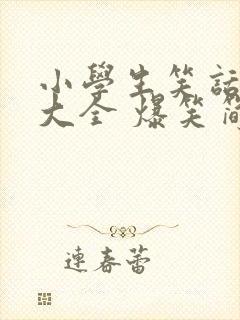 小學生笑話
大全 爆笑簡
連春蕾